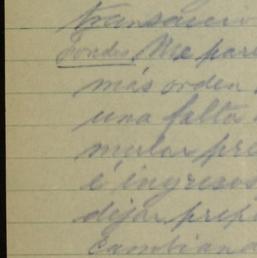 transacció
fondos Me pare
más orden
una falta
mular pre
é ingresos
dejar prepa
cambiand